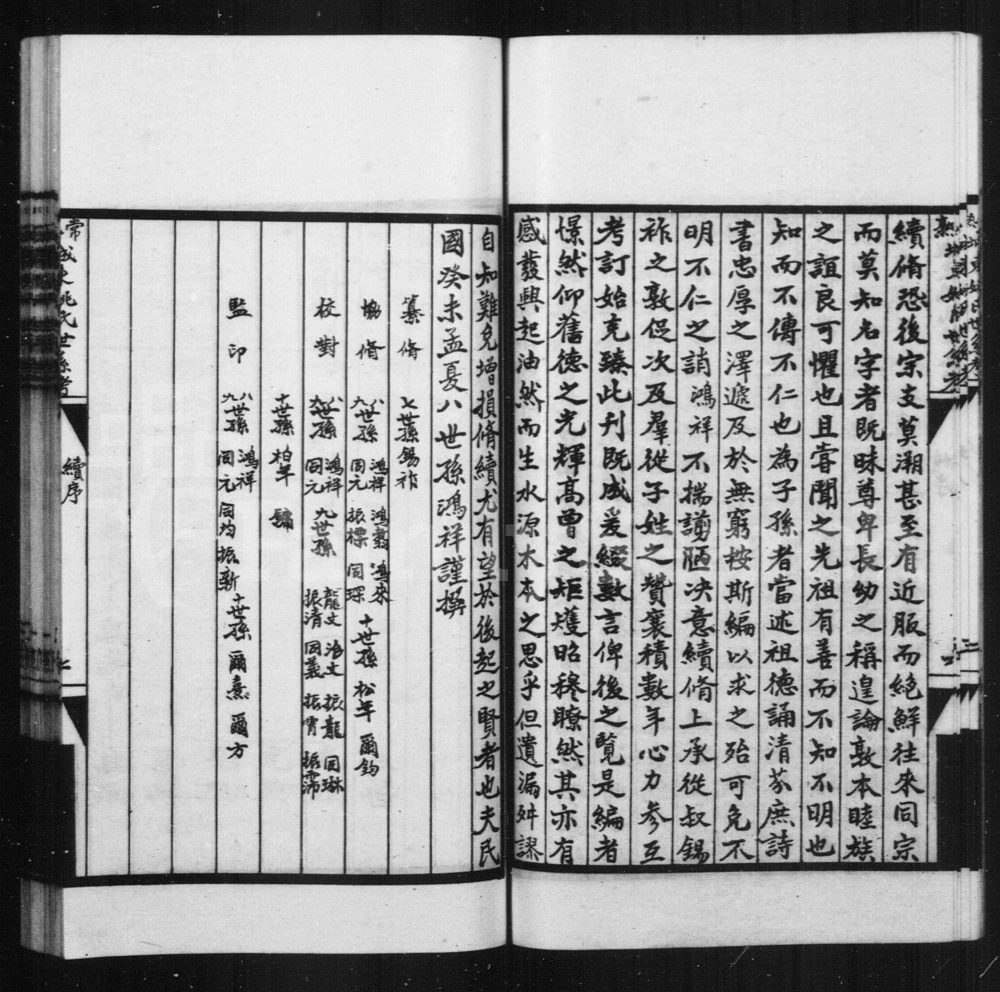 續脩恐後宗支莫溯甚至有近服而絶鮮往來同宗
而莫知名字者既昧尊卑長幼之稱遑論敦本睦族
之誼良可懼也且嘗聞之先祖有善而不知不明也
知而不傳不仁也為子孫者當述祖德誦清芬庶詩
書忠厚之澤遞及於無窮按斯編以求之殆可免不
明不仁之誚鴻祥不揣謭陋决意續脩上承從叔錫
祚之敦促次及羣從子姓之贊襄積數年心力參互
考訂始克臻此刊既成爰綴數言俾後之覽是編者
憬然仰舊德之光輝髙曾之矩矱昭穆瞭然其亦有
感發興起油然而生水源木本之思乎但遺漏舛謬
自知難免增損脩續尤有望於後起之賢者也夫民
國癸未孟夏八世孫鴻祥謹撰
纂脩 七世孫錫祚
協脩 八世孫 鴻祥 鴻翥 鴻來
九世孫 同元 振標 同琛 十世孫 松年 爾鈞
校對 八世孫 鴻祥 九世孫 龍文 治文 振龍 同琳
九世孫 同元 振清 同義 振霄 振霈
十世孫 柏年 驌
監印 八世孫 鴻祥
九世孫 同元 同均 振新 十世孫 爾熹 爾方
常 城東姚氏世系考 續序